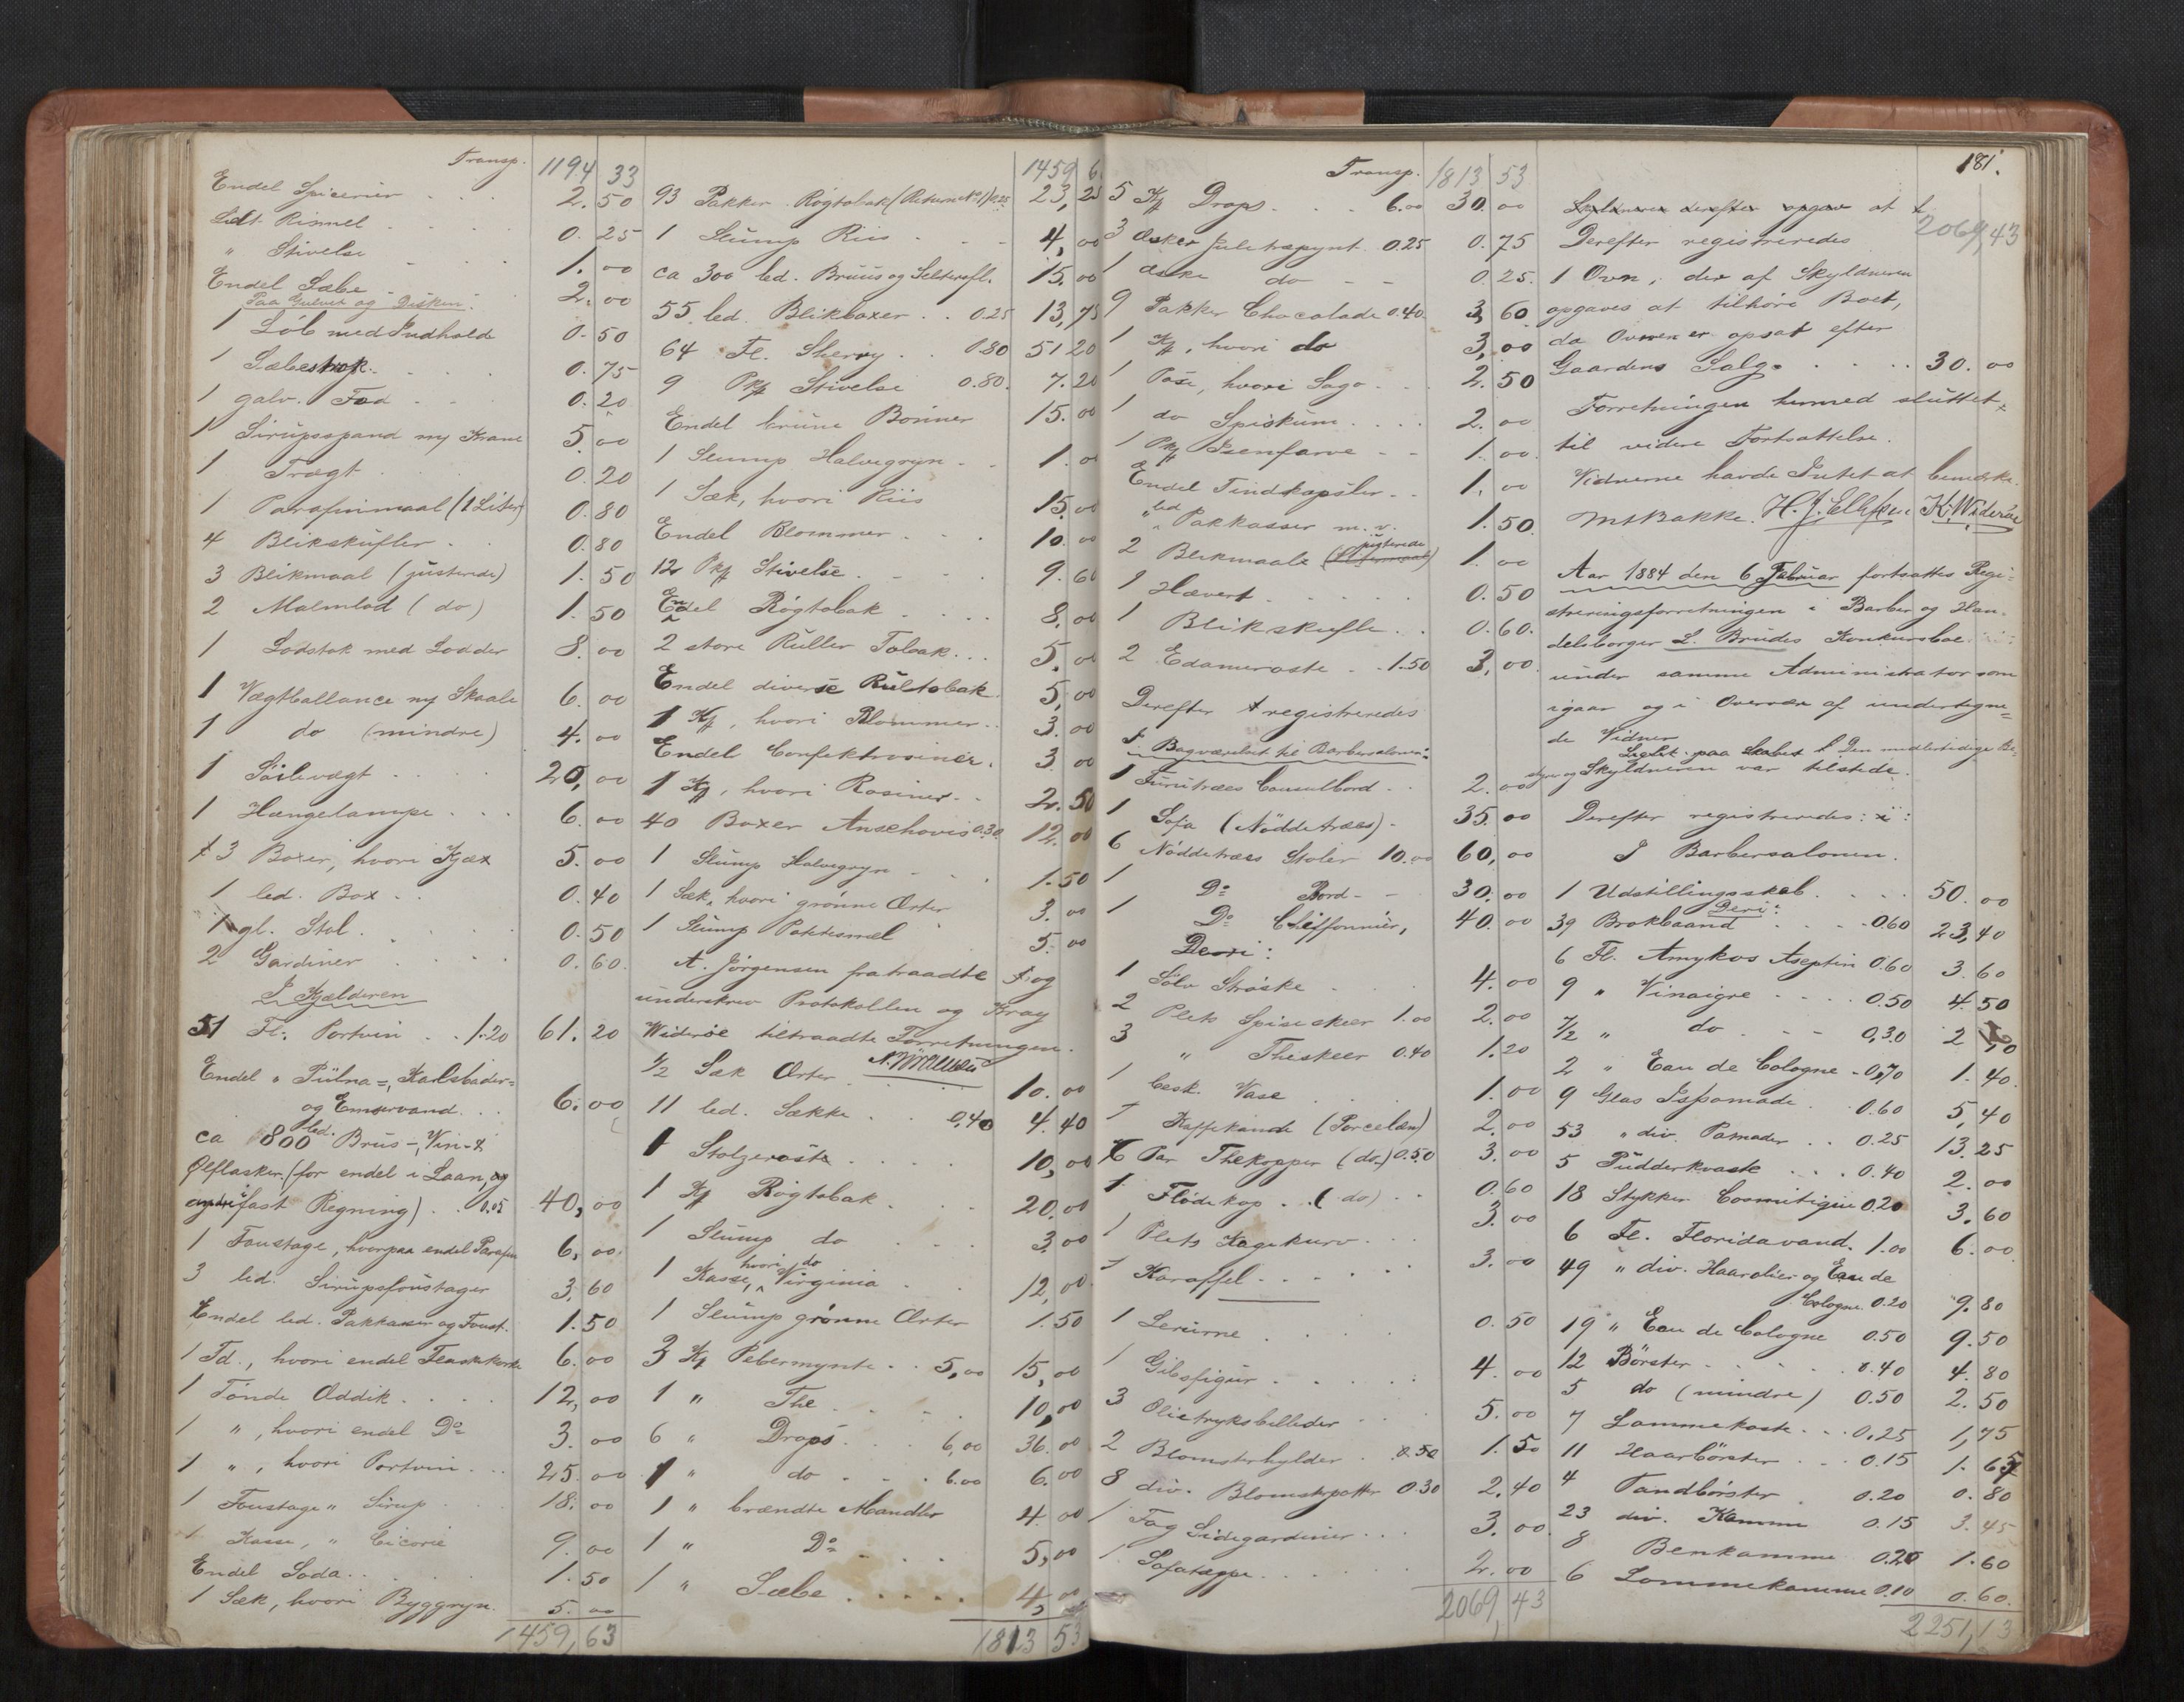 Transp. 1194 33
Endel Spicerier . . . 2. 50
Lidt Rismel . . . 0. 25
" Stivelse . . . 1. 00
Endel Sæbe . . . 2. 00
Paa Gulvet og Disken:
1 Løb med Indhold 0. 50
1 Sæbestrøk . . . 0. 75
1 galv. Fad . . . 0. 20
1 Sirupsspand m/ Krane 5. 00
1 Tragt . . . 0. 20
1 Parafinmaal (1 Liter) 0. 80
4 Blikskufler . . 0. 80
3 Blikmaal (justerede) 1. 50
2 Malmlod (do) 1. 50
1 Lodstok med Lodder 8. 00
1 Vægtballance m/ Skaale 6. 00
1 do (mindre) 4. 00
1 Söilevægt . . . 20, 00
1 Hængelampe . . . 6. 00
3 Boxer, hvori Kjæx 5. 00
1 led. Box . . 0. 40
1 gl. Stol . . . 0. 50
2 Gardiner . . . 0. 60
I Kjælderen
51 Fl. Portvin . . 1.20 61. 20
Endel " Pülna=, Karlsbader=
og Emservand . . . 6. 00
ca 800 led. Brus-, Vin- &
Ølflasker (for endel i Laan, og
i fast Regning) . . 0.05 40, 00
1 Foustage, hvorpaa endel Parafin 6, 00
3 led. Sirupsfoustager 3. 60
Endel led. Pakkasser og Foust. 1. 50
1 Td., hvori endel Flaskekorke 6. 00
1 Tönde Æddik . . . . 12, 00
1 ", hvori endel Do 3. 00
1 ", hvori Portvin . . . 25. 00
1 Foustage " Sirup . . . 18. 00
1 Kasse, " Cicorie 9. 00
Endel Soda . . . 1. 50
1 Sæk, hvori Byggryn 5. 00
1459, 63
1459 6
93 Pakker Røgtobak (Return No 1) 0.25 23, 25
1 Slump Riis . . . 4, 00
ca 300 led. Bruus og Seltersfl. 15. 00
55 led. Blikboxer . . 0.25 13, 75
64 Fl. Sherry . . 0.80 51 20
9 Pk Stivelse 0.80. 7. 20
Endel brune Bönner 15. 00
1 Slump Halvegryn . . 1. 00
1 Sæk, hvori Riis 15. 00
Endel Blommer . . . 10. 00
12 Pk Stivelse . . . 9. 60
Endel Røgtobak . . . 8. 00
2 store Ruller Tobak . . . 5. 00
Endel diverse Rultobak 5, 00
1 Kf, hvori Blommer . . 3. 00
Endel Confektrosiner. 3 00
1 Kf, hvori Rosiner . . 2. 50
40 Boxer Anschovis 0.30. 12. 00
1 Slump Halvegryn . . 1. 50
1 Sæk, hvori grönne Ærter 3. 00
1 Slump Potetesmel 5. 00
A. Jörgensen fratraadte og
underskrev Protokollen og Kray
Wideröe tiltraadte Forretningen.
A. Jörgensen
1/2 Sæk Ærter . . . 10. 00
11 led. Sække . . . 0,40 4. 40
1 Stolzeroste . . . 10, 00
1 Kf Røgtobak . . . 20. 00
1 Slump do . . . 3. 00
1 Kasse, hvori do Virginia . 12, 00
1 Slump grönne Ærter 1. 50
3 Kf Pebermynte . . 5,00 15, 00
1 " The . . . 10, 00
6 " Drops . . . 6,00 36. 00
1 " do . . . 6.00 6. 00
1 " brændte Mandler 4. 00
1 " Do . . . 5, 00
1 " Sæbe . . . . 4, 00
1813 53
Transp. 1813 53
5 Kf Drops . . . 6.00 30. 00
3 Æsker Juletræpynt 0.25 0. 75
1 Æske do . . 0. 25.
9 Pakker Chocolade 0.40. 3, 60
1 Kf, hvori do 3, 00
1 Pose, hvori Sago . . 2. 50
1 do Spiskum . . . . 2. 00
1 Pk Isenfarve . . 1. 00
Endel Tindkapsler . . 1. 00
" led Pakkasser m. v. 1. 50
2 Blikmaal (justerede) 1. 00
1 Hævert . . . . . 0. 50
1 Blikskufle . . 0. 60.
2 Edameroste . . 1.50 3, 00
Derefter registreredes
I Bagværelset til Barbersalonen:
1 Furutræes Consulbord . . 2. 00
1 Sofa (Nöddetræes) . 35. 00
6 Nöddetræes Stoler 10.00 60, 00
1 Do Bord . . 30. 00
1 Do Chiffonnier, 40. 00
Deri:
1 Sölv Ströske . . . 4. 00
2 Plets Spiseskeer 1.00 2. 00
3 " Theskeer 0.40 1. 20
1 besk. Vase . . . 1. 00
1 Kaffekande (Porcelæn) 2. 00
6 Par Thekopper (do) 0.50 3. 00
1 Flödekop . . (do) . . 0. 60
1 Plets Kagekurv . . . 3. 00
1 Karaffel . . . . . 3. 00
1 Lerurne . . . . 0. 50
1 Gibsfigur . . . . . 4. 00
3 Olietryksbilleder . . . 5. 00
2 Blomsterhylder . . 0.50 1. 50
8 div. Blomsterpotter 0.30 2, 40
1 Fag Sidegardiner . . . 3. 00.
1 Sofatæppe . . . . . . 2. 00
2069, 43
181.
Skyldneren derefter opgav at
2069,43
Derefter registreredes
1 Ovn, der af Skyldneren
opgaves at tilhöre Boet,
da Ovnen er opsat efter
Gaardens Salg. . . . . 30. 00
Forretningen hermed sluttet
til videre Fortsattelse.
Vidnerne havde Intet at bemærke.
MtBakke. H. J. Ellefsen K. Wideröe
Aar 1884 den 6 Februar fortsattes Regi=
streringsforretningen i Barber og Han=
delsborger L. Brudes Konkursboe
under samme Administrator som
igaar og i Overvær af undertegne=
de Vidner
Seglet paa Skabet . Den midlertidige Be=
styrer og Skyldneren var tilstede.
Derefter registreredes:
I Barbersalonen.
1 Udstillingsskab . . . . 50. 00
Deri:
39 Brokbaand . . . . 0.60 23, 40
6 Fl. Amykos Aseptin 0.60 3. 60
9 " Vinaigre . . . . 0.50 4. 50
7/2 " do . . . 0,30 2 10
2 " Eau de Cologne . 0,70 1. 40.
9 Glas Ispomade . . 0.60 5, 40
53 " div. Pomader . . 0.25 13. 25
5 Pudderkvaste . . . 0.40 2. 00
18 Stykker Cosmetique 0.20 3. 60
6 Fl. Floridavand. 1.00 6. 00
49 " div. Haarolier og Eau de
Cologne. 0.20 9. 80
19 " Eau de Cologne 0.50 9. 50
12 Börster . . . . . 0.40 4. 80
5 do (mindre) 0.50 2. 50
7 Lommekoste . . . 0,25 1, 75
11 Haarbörster . . . 0.15 1. 65
4 Tandbörster . 0.20 0. 80
23 div. Kamme 0.15 3. 45
8 Benkamme 0.20 1. 60
6 Lommekamme 0.10 0. 60.
2251,13